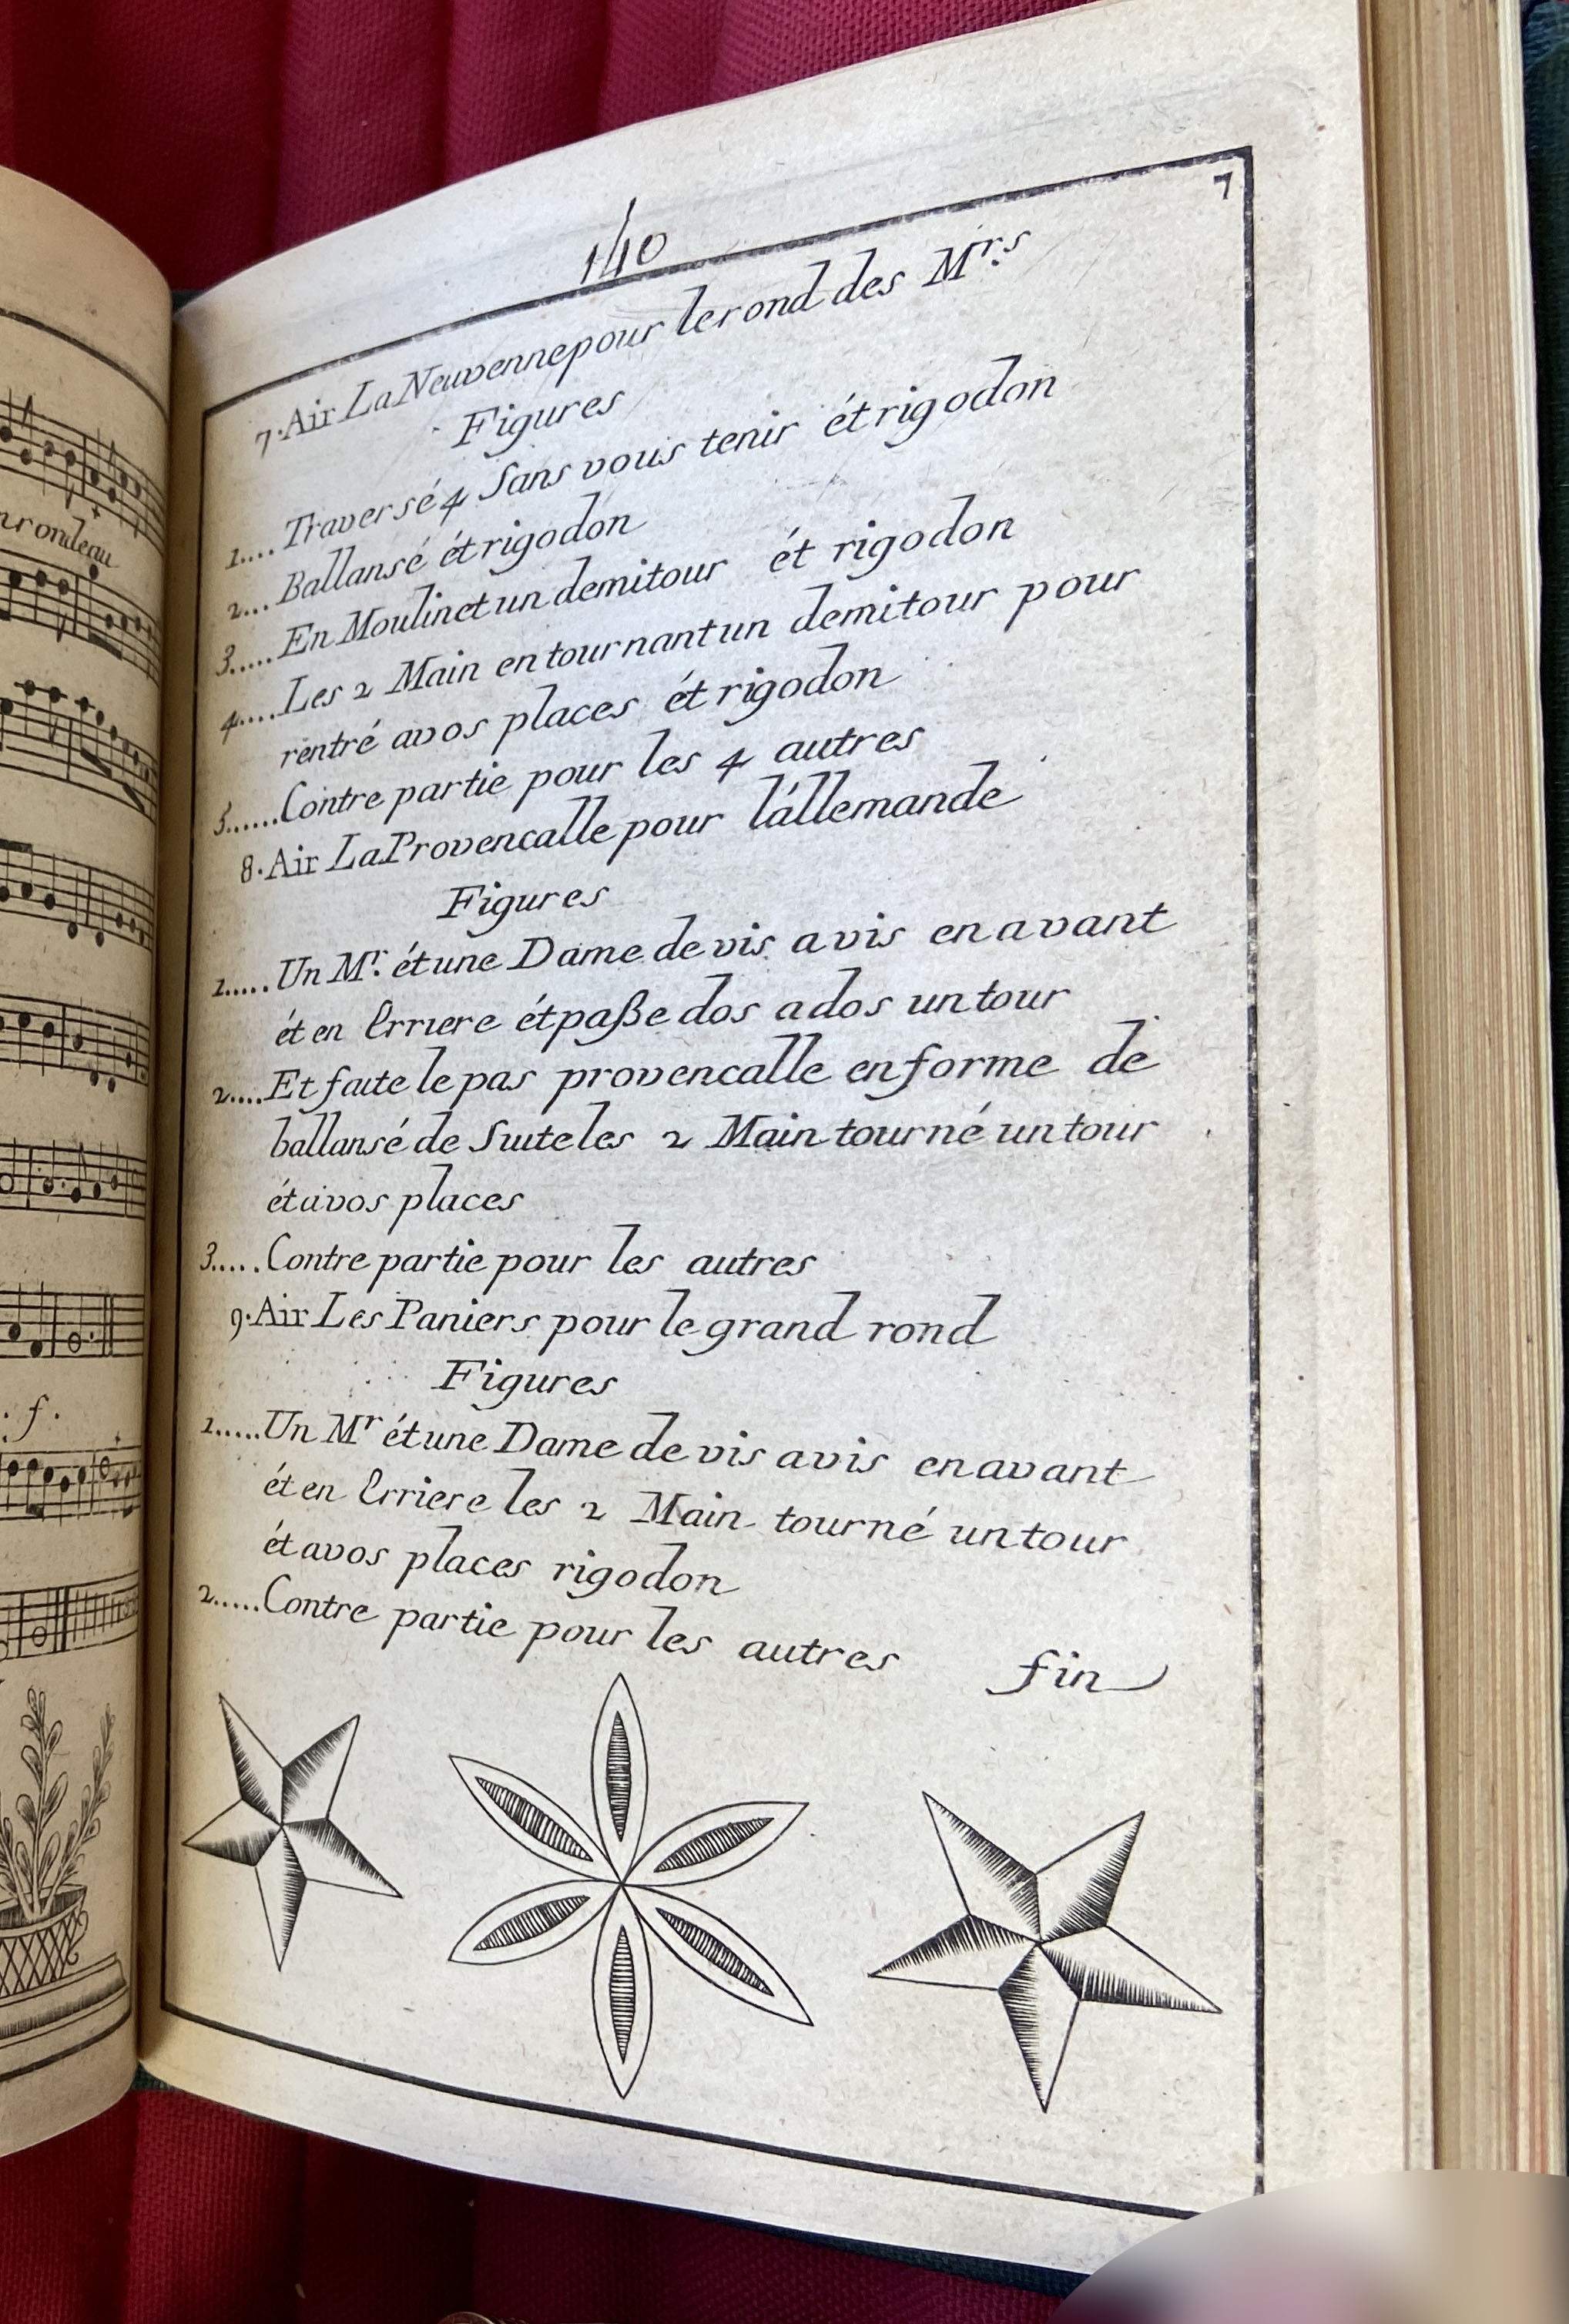 nrondeau
. f .
7
140
7. Air La Neuvenne pour le rond des Mrs
Figures
1.... Traversé 4 Sans vous tenir ét rigodon
2... Ballansé ét rigodon
3..... En Moulinet un demitour ét rigodon
4.... Les 2 Main en tournant un demitour pour
rentré avos places ét rigodon
5...... Contre partie pour les 4 autres
8. Air La Provencalle pour l'allemande
Figures
1..... Un Mr. ét une Dame de vis a vis en avant
ét en Erriere ét paße dos a dos un tour
2.... Et faite le pas provencalle en forme de
ballansé de Suite les 2 Main tourné un tour
ét avos places
3..... Contre partie pour les autres
9. Air Les Paniers pour le grand rond
Figures
1..... Un Mr ét une Dame de vis a vis en avant
ét en Erriere les 2 Main tourné un tour
ét avos places rigodon
2..... Contre partie pour les autres fin